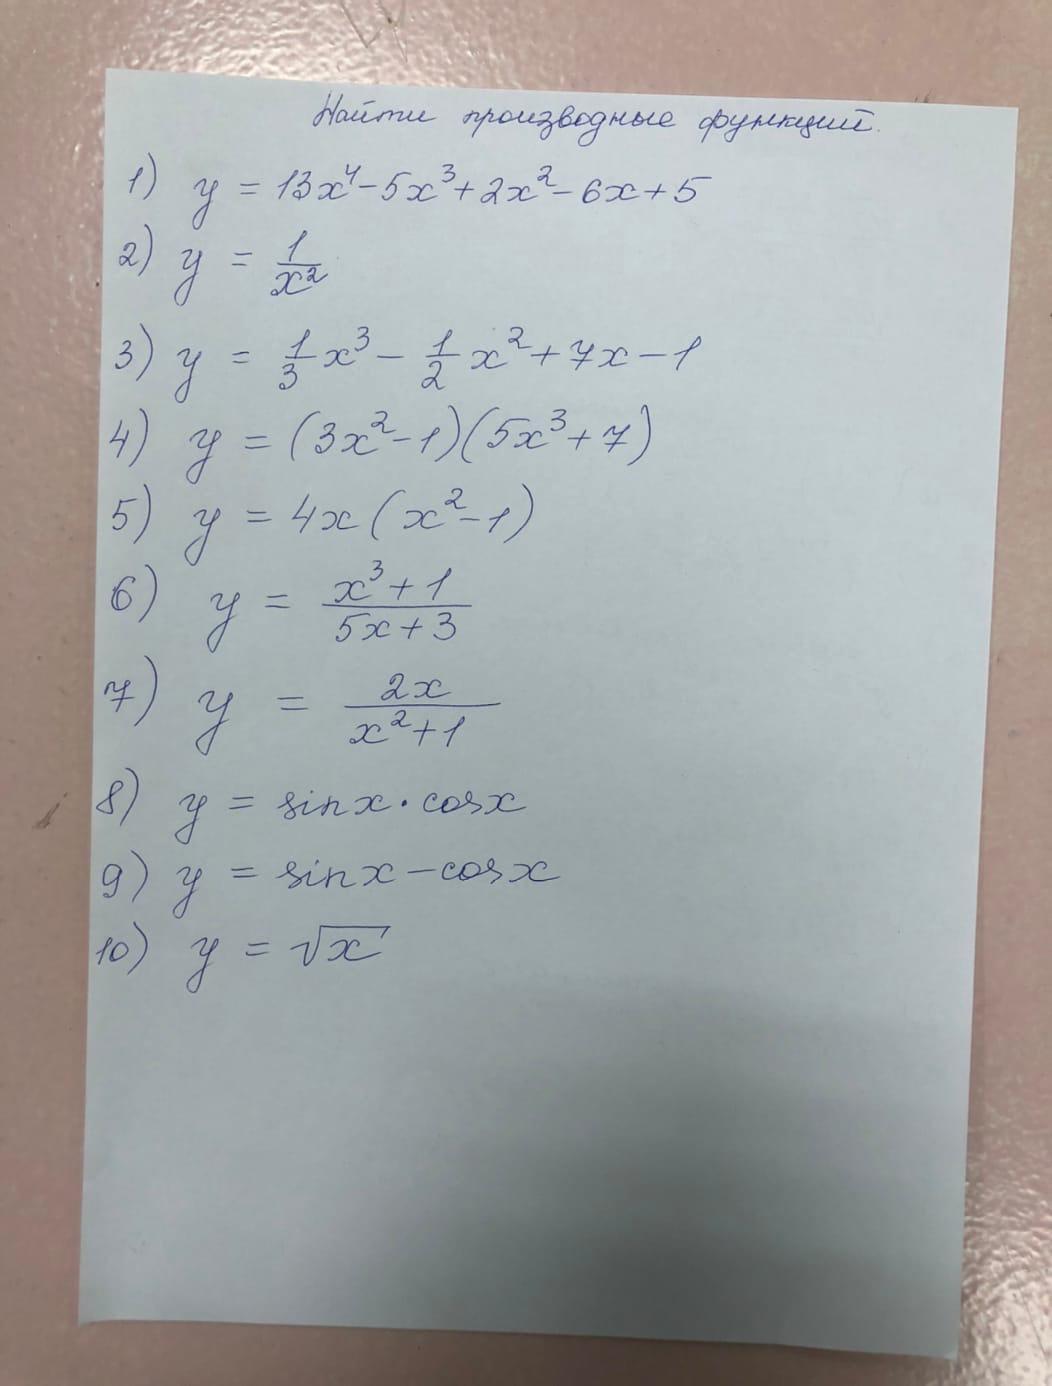 Найти производные функций.
1) y = 13x⁴ - 5x³ + 2x² - 6x + 5
2) y = 1/x²
3) y = 1/3 x³ - 1/2 x² + 7x - 1
4) y = (3x² - 1)(5x³ + 7)
5) y = 4x (x² - 1)
6) y = (x³ + 1)/(5x + 3)
7) y = 2x/(x² + 1)
8) y = sinx · cosx
9) y = sinx - cosx
10) y = √x